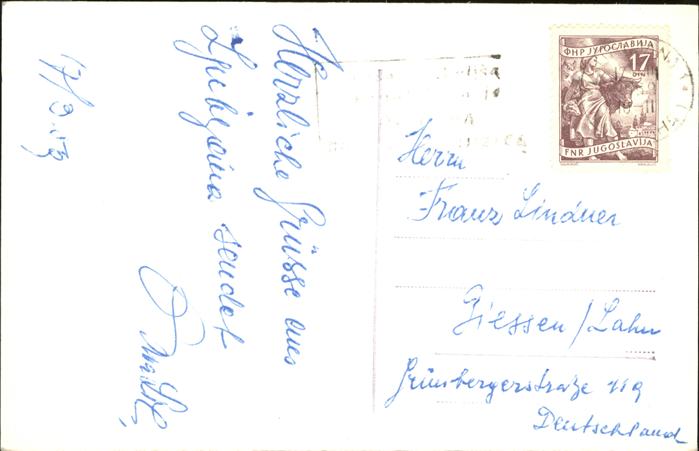 17/9.53
Herzliche Grüsse aus
Ljubljana sendet
ФНР ЈУГОСЛАВИЈА
17
DIN
FNR JUGOSLAVIJA
Herrn
Franz Lindner
Giessen/Lahn
Grünbergerstraße 119
Deutschland